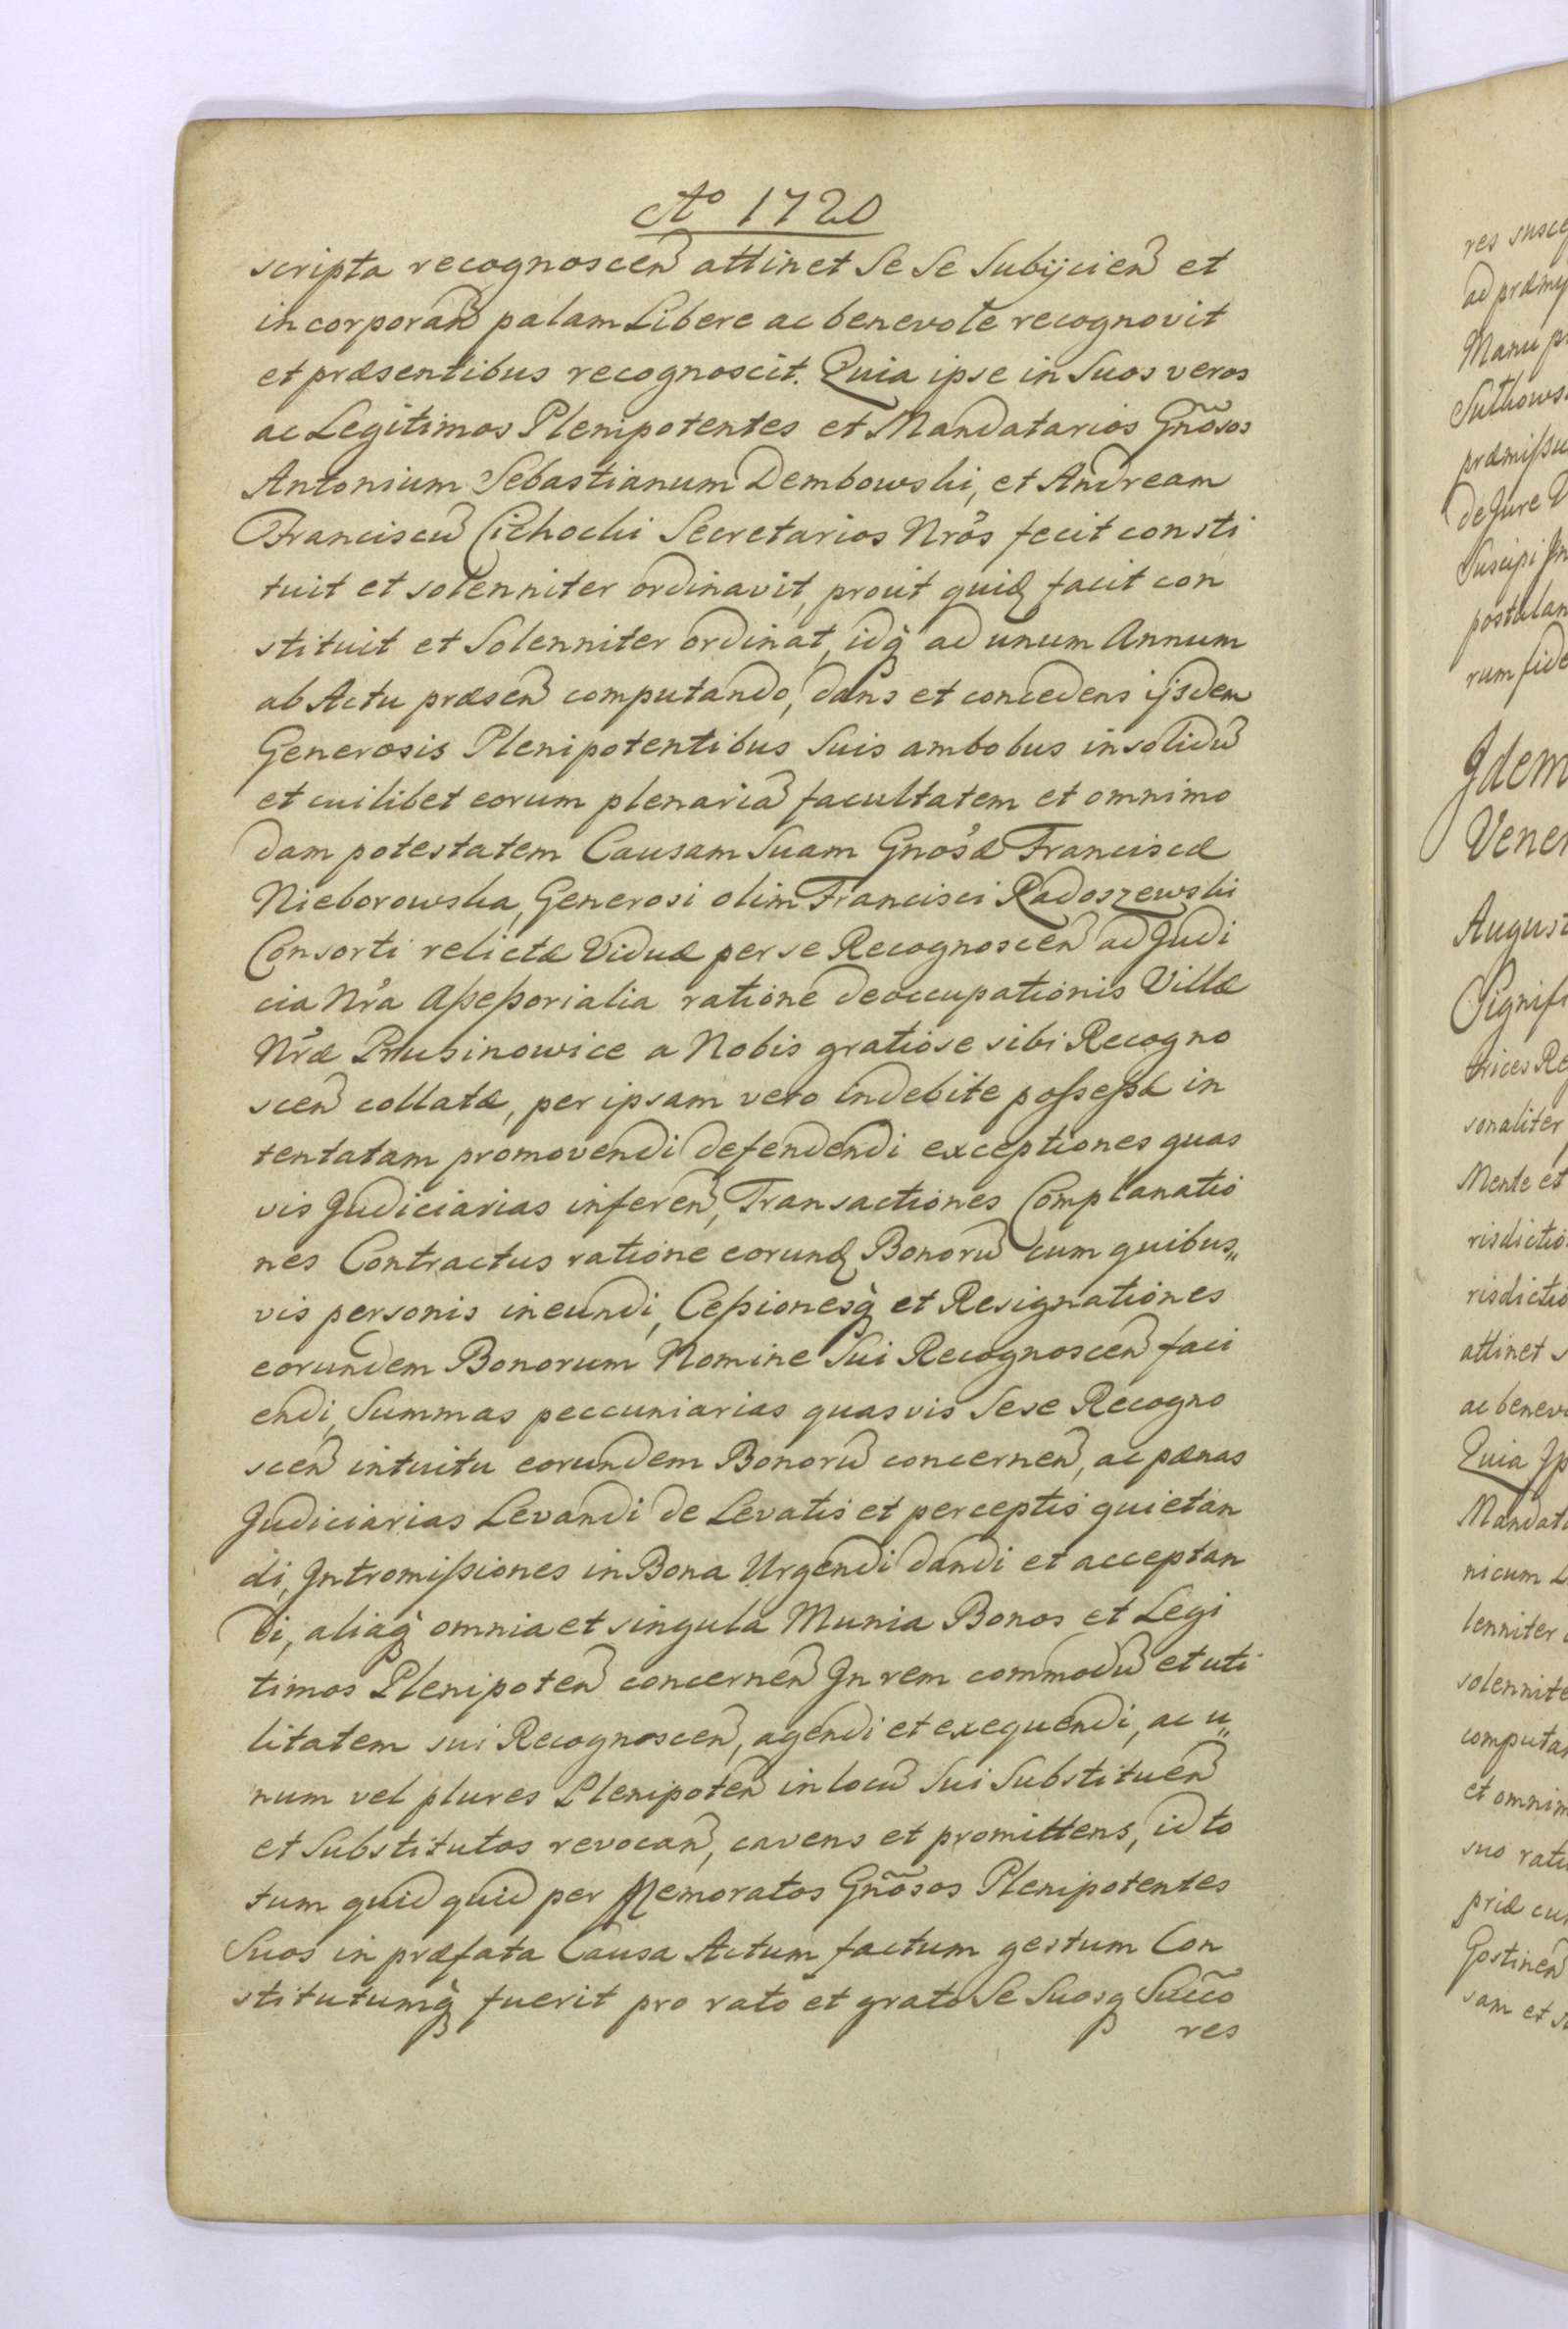 Aо 1720
scripta recognoscen attinet Se Se Subijcien et
incorporan palam Libere ac benevole recognovit
et præsentibus recognoscit. Quia ipse in Suos veros
ac Legitimos Plenipotentes et Mandatarios Gnõsos
Antonium Sebastianum Dembowski, et Andream
Franciscu Cichocki Secretarios Nros fecit consti
tuit et solenniter ordinavit, prout quid facit con
stituit et Solenniter ordinat, idq ad unum Annum
ab Actu præsen computando, dans et concedens ijsdem
Generosis Plenipotentibus Suis ambobus insolidu
et cuilibet eorum plenaria facultatem et omnimo
dam potestatem Causam Suam Gnosæ Franciscæ
Nieborowska, Generosi olim Francisci Radoszewski
Consorti relictæ Viduæ per se Recognoscen ad Judi
cia Nra Aßeßorialia ratione deoccupationis Villæ
Nræ Prusinowice a Nobis gratiose sibi Recogno
scen collatæ, per ipsam vero indebite poßeßæ in
tentatam promovendi defendendi exceptiones quas
vis Judiciarias inferen, Transactiones Complanatio
nes Contractus ratione eorund Bonoru cum quibus„
vis personis ineundi, Ceßionesq et Resignationes
eorundem Bonorum Nomine Sui Recognoscen faci
endi, Summas peccuniarias quasvis Sese Recogno
scen intuitu eorundem Bonoru concernen, ac pænas
Judiciarias Levandi de Levatis et perceptis quietan
di, Intromißiones in Bona Urgendi dandi et acceptan
di, aliaq omnia et singula Munia Bonos et Legi
timos Plenipoten concernen In rem commodu et uti
litatem sui Recognoscen, agendi et exequendi, ac u„
num vel plures Plenipoten in locu Sui Substituen
et Substitutos revocan, cavens et promittens, id to
tum quid quid per Memoratos Gnõsos Plenipotentes
Suos in præfata Causa Actum factum gestum Con
stitutumq fuerit pro rato et grato Se Suosq Succõ
res